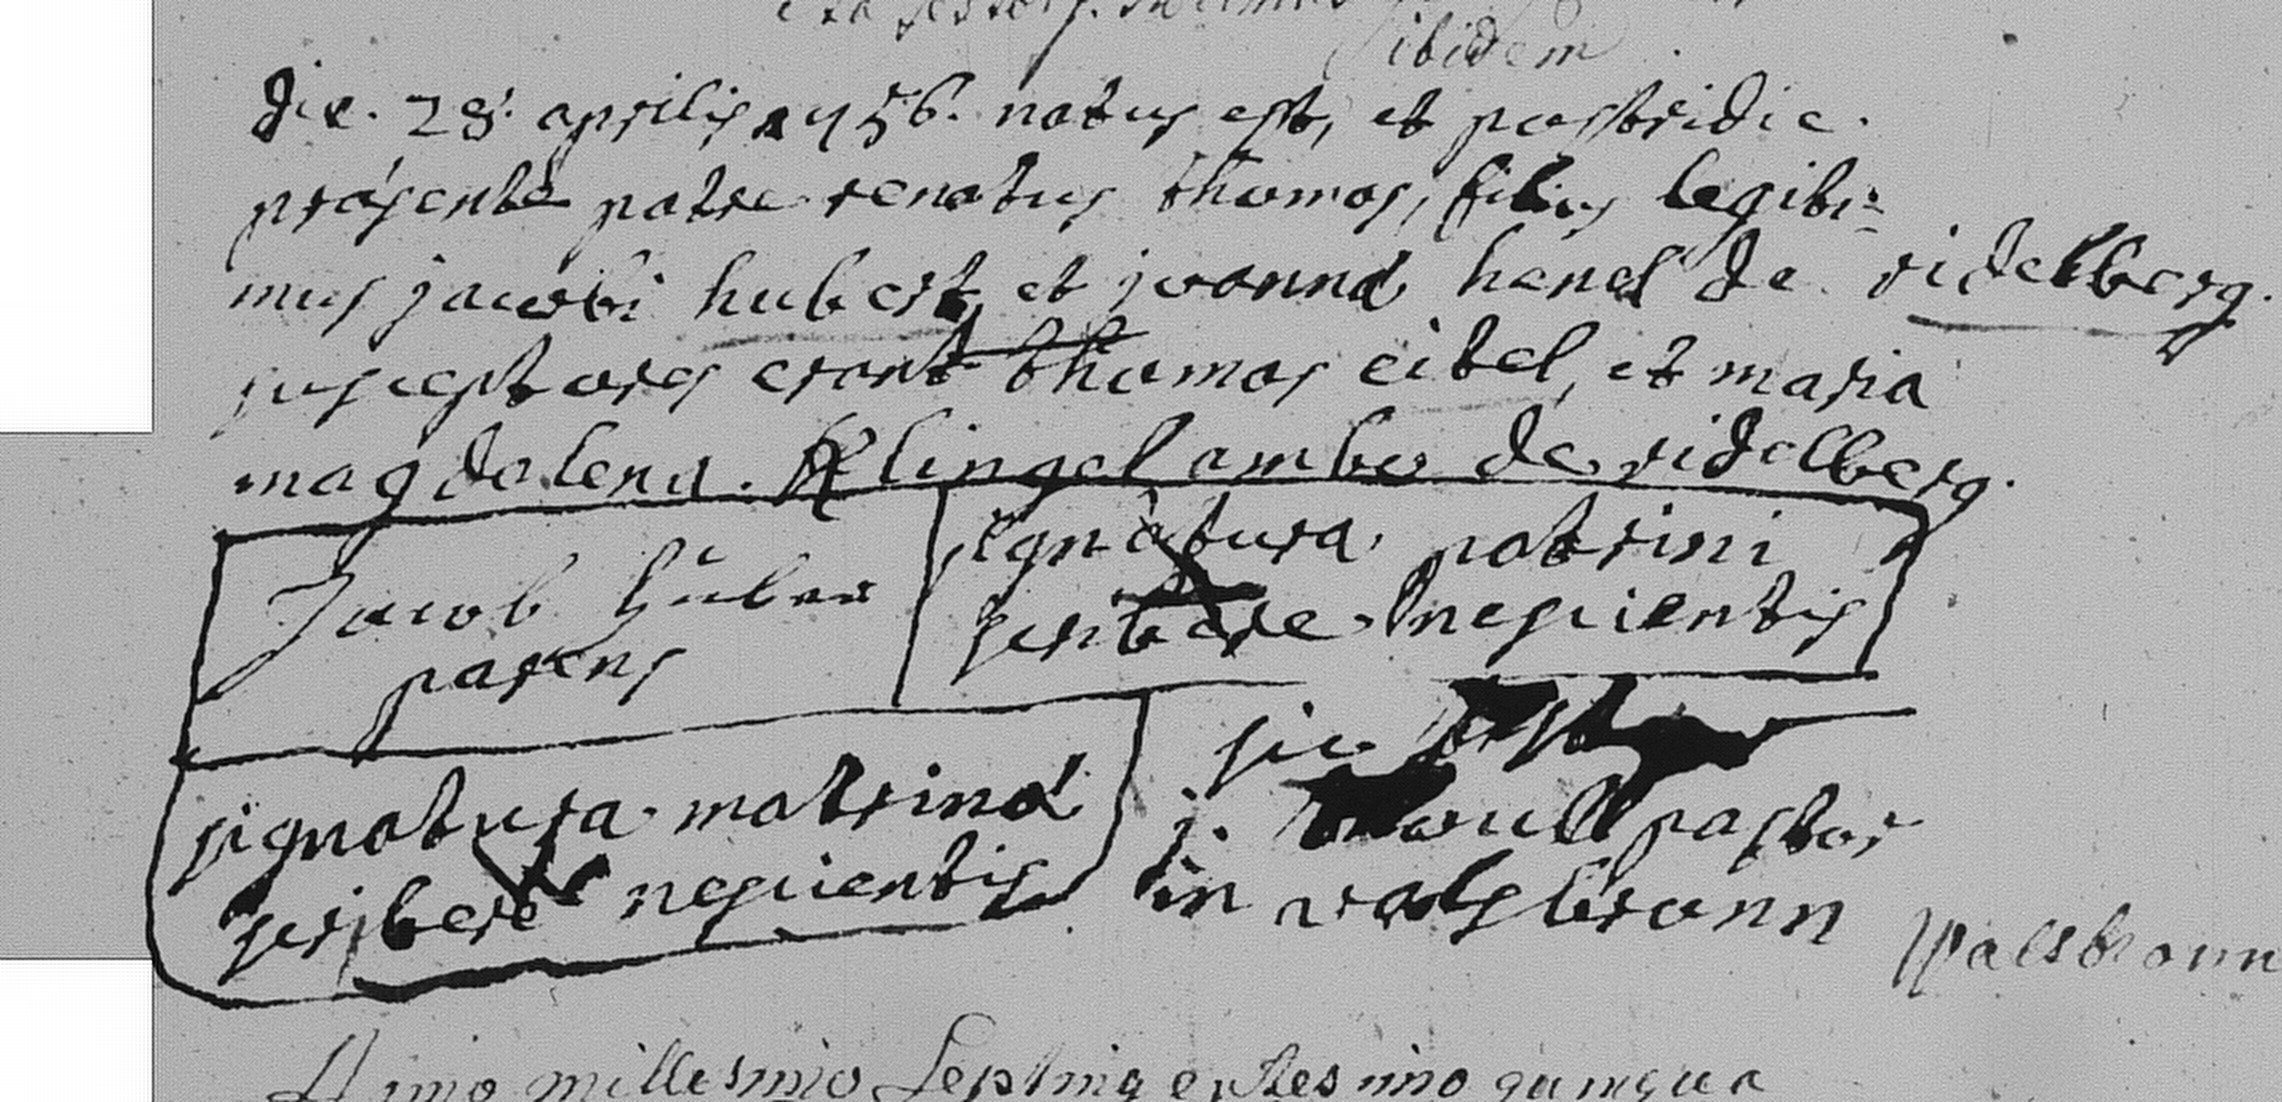 ibidem
die. 28. aprilis 1756. natus est, et postridie.
præsente patre renatus thomas, filius legiti=
mus jacobi hubert, et joannæ henel de ridelberg.
susceptores erant thomas eitel, et maria
magdalena. Klingelambo de ridelberg.
Jacob Huber
parens
signatura patrini
scribere nescientis
signatura matrinæ
scribere nescientis
sic
j. pastor
in valsbronn
Walsbronn
Anno millesimo Septing entesimo quinqua